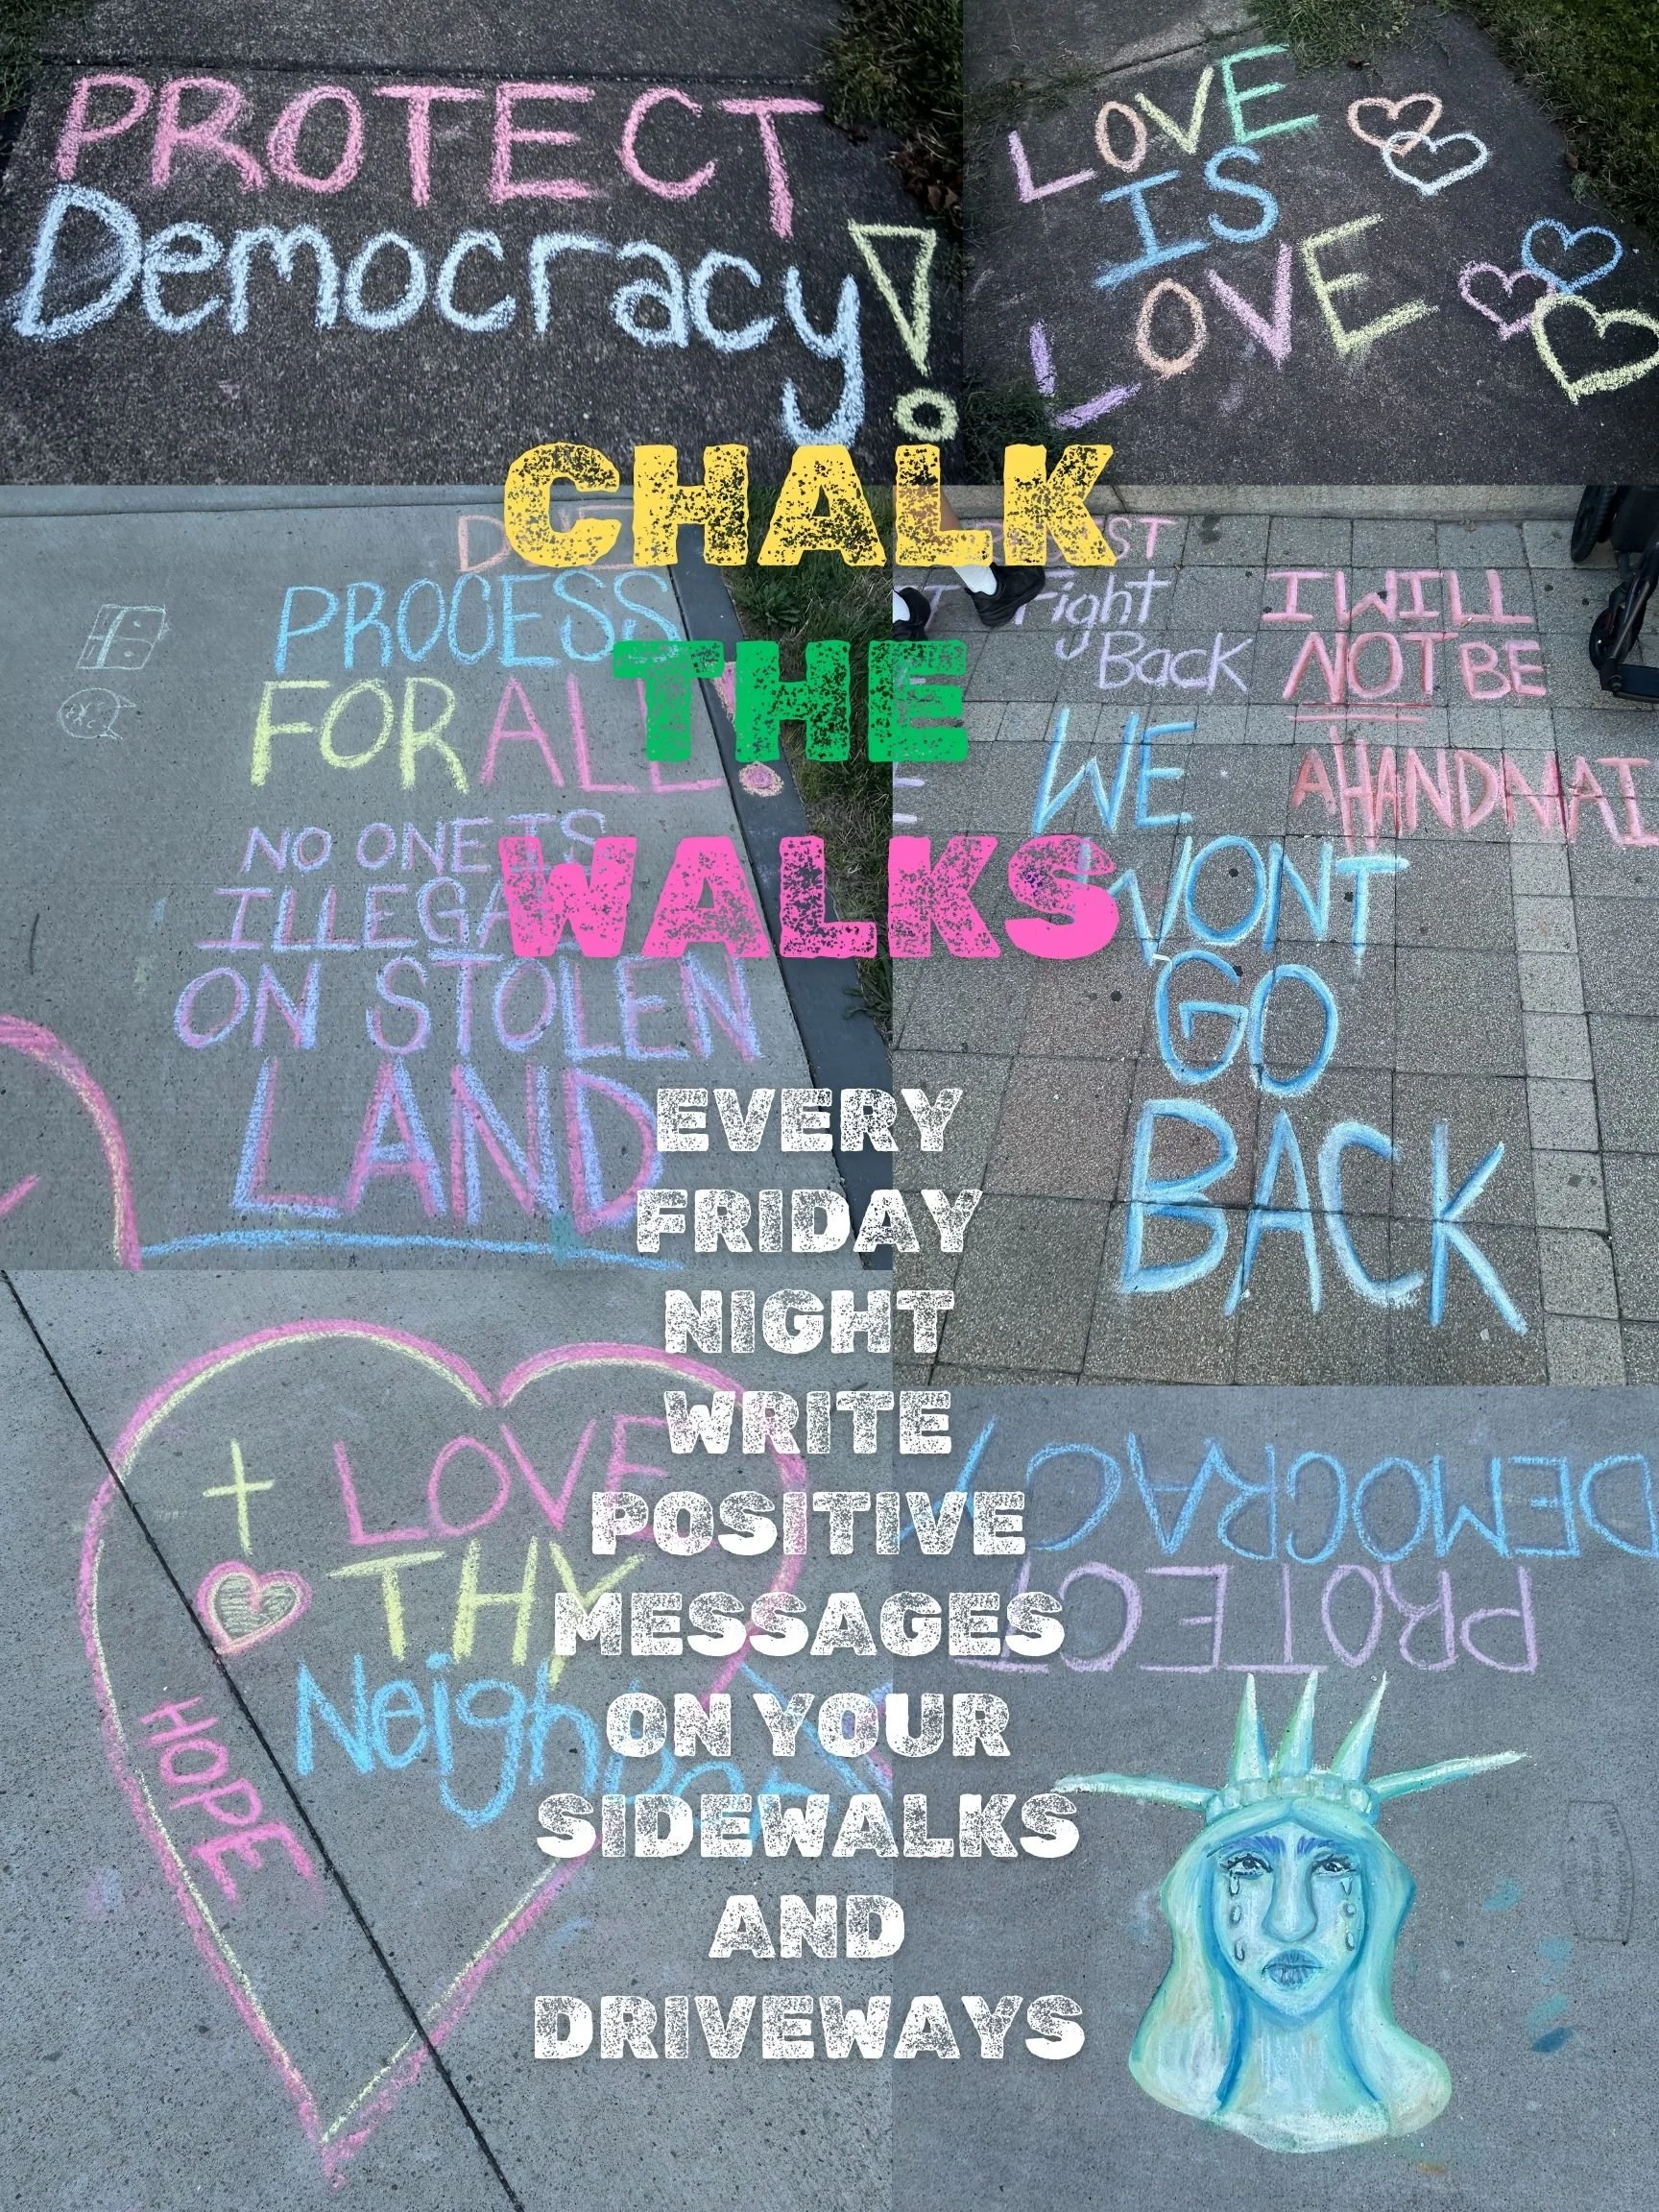 PROTECT
Democracy!
LOVE
IS
LOVE
CHALK
THE
WALKS
PROCESS
FOR ALL
NO ONE IS
ILLEGAL
ON STOLEN
LAND
Fight
Back
I WILL
NOT BE
AHANDMAI
WE
WONT
GO
BACK
EVERY
FRIDAY
NIGHT
WRITE
POSITIVE
MESSAGES
ON YOUR
SIDEWALKS
AND
DRIVEWAYS
LOVE
THY
Neighbor
HOPE
PROTECT
DEMOCRACY